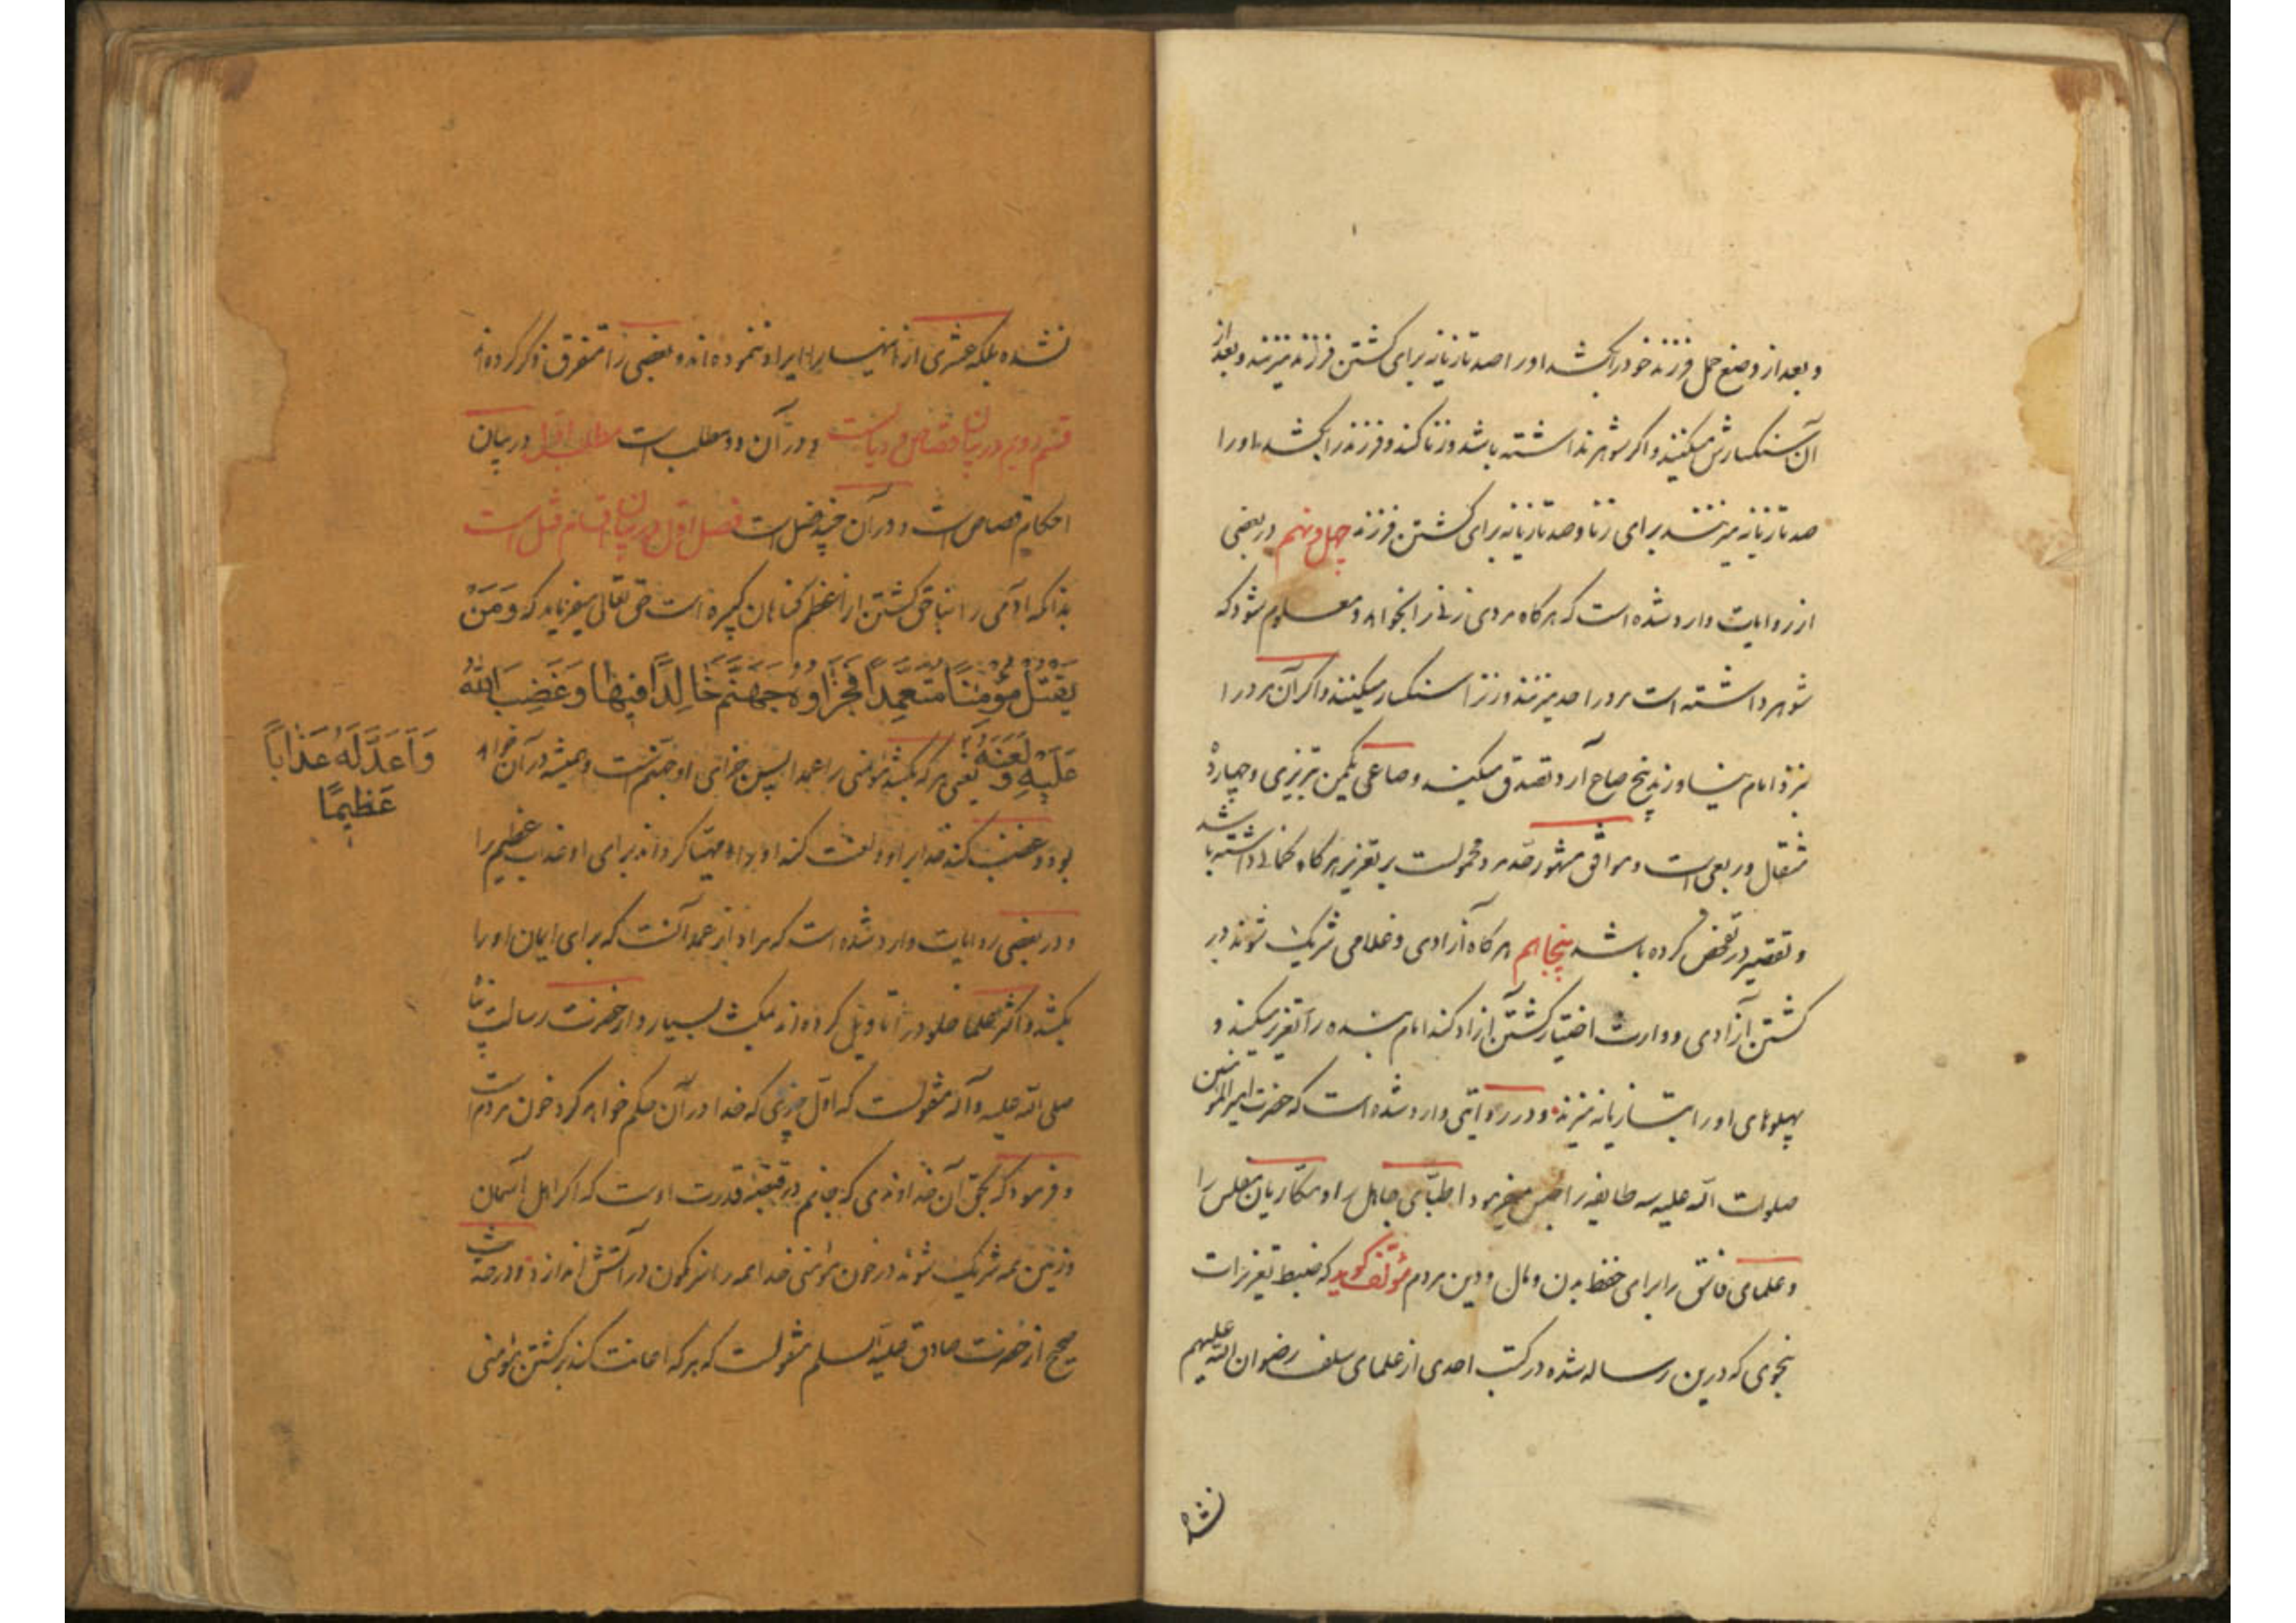 و بعد از وضع حمل فرزند خود را بکشد او را صد تازیانه برای کشتن فرزند میزنند و بعد از
آن سنکسارش میکنند و اکر شوهر نداشته باشد و زنا کند و فرزند را بکشد او را
صد تازیانه میزنند برای زنا و صد تازیانه برای کشتن فرزند چهل و نهم در بعضی
از روایات وارد شده است که هرکاه مردی زنی را بخواهد و معلوم شود که
شوهر داشته است مرد را حد میزنند و زن را سنکسار میکنند و اکر آن مرد را
نزد امام نیاورند پنج صاع آرد تصدق میکند و صاعی یکمن تبریزی و چهارده
مثقال و ربعی است و موافق مشهور حد مرد محمولست بر تعزیر هرکاه کمانی داشته باشد
و تقصیر در تفحص کرده باشد پنجاهم هرکاه آزادی و غلامی شریک شوند در
کشتن آزادی و وارث اختیار کشتن آزاد کند امام بنده را تعزیر میکند و
پهلوهای او را بتازیانه میزند و در روایتی وارد شده است که حضرت امیرالمؤمنین
صلوات الله علیه سه طایفه را حبس میفرمود اطبای جاهل را و مکاریان مفلس را
و علمای فاسق را برای حفظ بدن و مال و دین مردم مؤلف کوید که ضبط تعزیرات
بنحوی که درین رساله شده در کتب احدی از علمای سلف رضوان الله علیهم
نشده
نشده بلکه عشری از اینها را ایراد ننموده‌اند و بعضی را متفرق ذکر کرده‌اند
قسم دویم در بیان قصاص و دیاتست و در آن دو مطلب است مطلب اول در بیان
احکام قصاص است و در آن چند فصل است فصل اول در بیان اقسام قتل است
بدانکه آدمی را بناحق کشتن از اعظم کناهان کبیره است حق تعالی میفرماید که وَمَنْ
یَقْتُلْ مُؤْمِنًا مُتَعَمِّدًا فَجَزَاؤُهُ جَهَنَّمُ خَالِدًا فِیهَا وَغَضِبَ اللّٰهُ
عَلَیْهِ وَ لَعَنَهُ یعنی هرکه بکشد مؤمنی را عمدا پس جزای او جهنم است و همیشه در آن خواهد
وَاَعَدَّ لَهُ عَذَاباً
عَظِیمًا
بود و غضب کند خدا بر او و لعنت کند او را و مهیا کرداند برای او عذاب عظیم را
و در بعضی روایات وارد شده است که مراد از عمد آنست که برای ایمان او را
بکشد و اکثر علما خلود را تاویل کرده‌اند بمکث بسیار و از حضرت رسالت پناه
صلی الله علیه و آله منقولست که اول چیزی که خدا در آن حکم خواهد کرد خون مردم است
و فرمود که بحق آن خداوندی که جانم در قبضه قدرت اوست که اکر اهل آسمان
و زمین همه شریک شوند در خون مؤمنی خدا همه را سرنکون در آتش اندازد و در حدیث
صحیح از حضرت صادق علیه السلم منقولست که هرکه اعانت کند بر کشتن مؤمنی